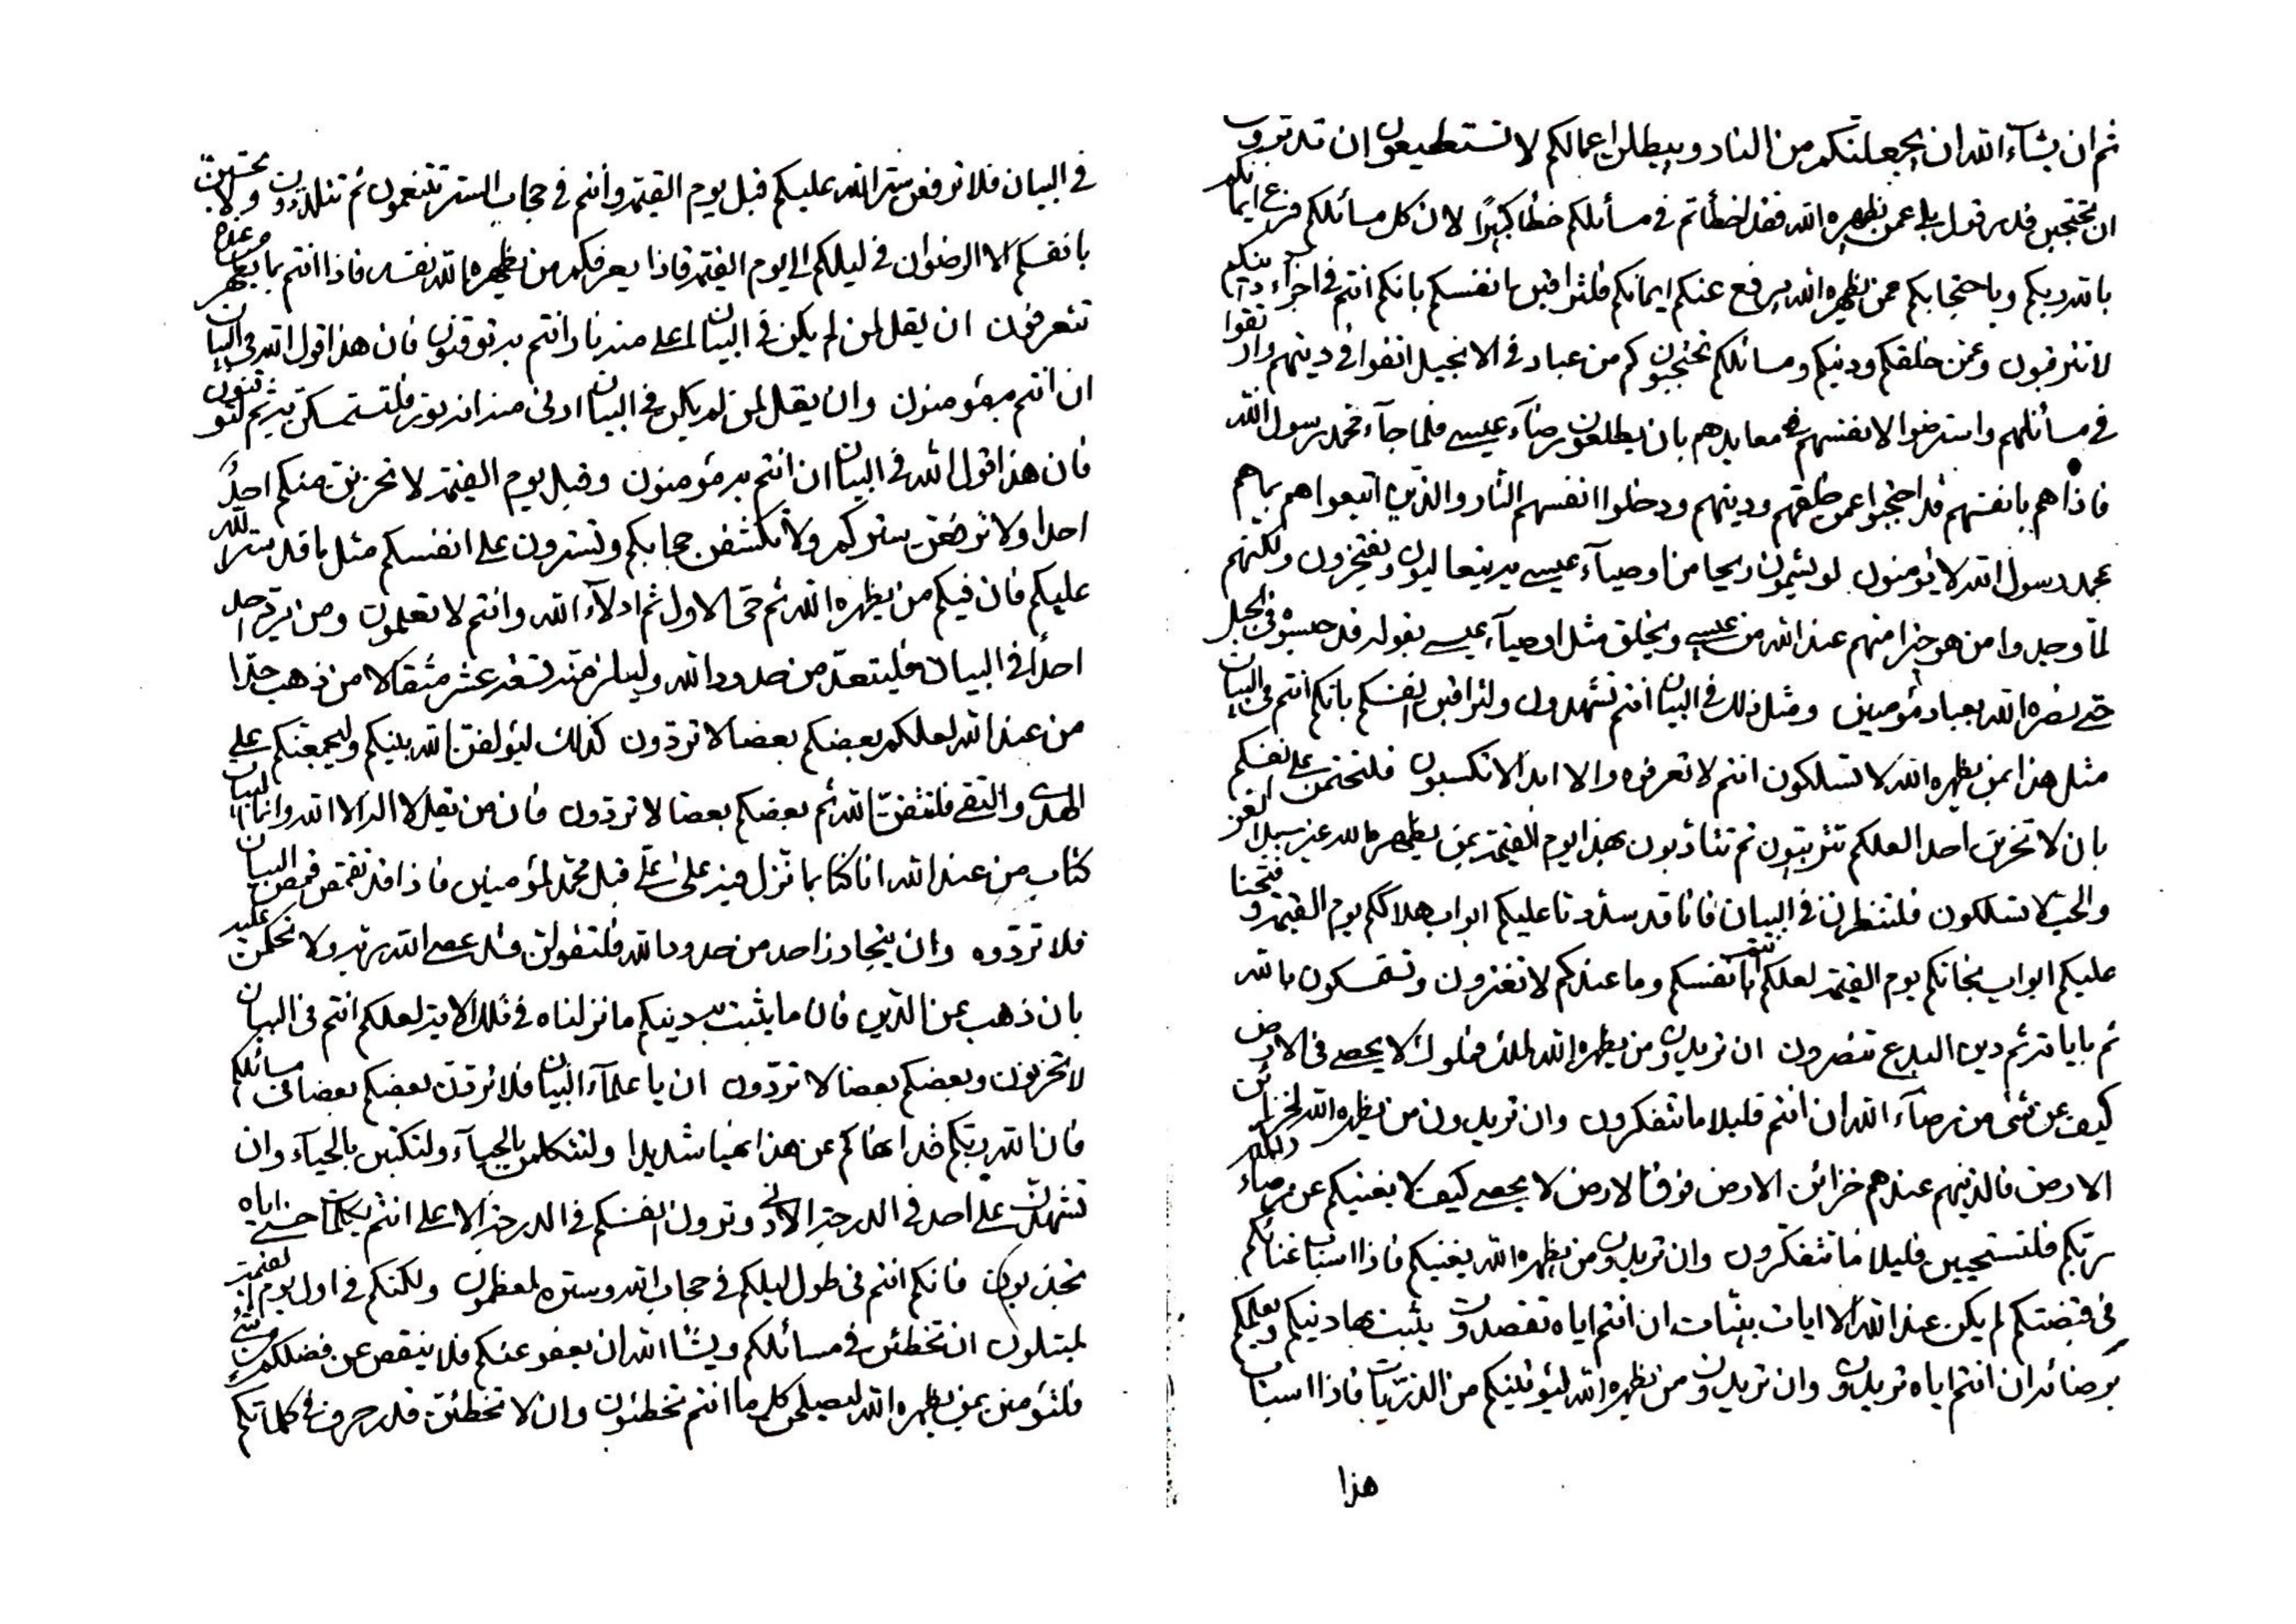 في البيان فلا ترفعن ستر الله عليكم قبل يوم القيمة وانتم في حجاب الستر تتنعمون ثم تتلذذون ولا تحتجبن
بانفسكم الا الرضوان في ليلكم الى يوم القيمة فاذا يعرفكم من يظهره الله نفسه فاذا انتم بما يظهر من عنده
تتعرفون ان يقل لمن لم يكن في البيان اعلى منه نارا انتم به توقنون فان هذا قول الله في البيان
ان انتم به مؤمنون وان يقل لمن لم يكن في البيان ادنى منه انه نور فلتستمسكن به ثم لتوقنون
فان هذا قول الله في البيان ان انتم به مؤمنون وقبل يوم القيمة لا تحزنن منكم احد
احدا ولا ترفعن ستركم ولا تكشفن حجابكم وتسترون على انفسكم مثل ما قد ستر الله
عليكم فان فيكم من يظهره الله ثم حي الاول ثم ادلاء الله وانتم لا تعلمون ومن يرد احد
احدا في البيان فليتعد من حدود الله وليلزمنه تسعة عشر مثقالا من ذهب حدا
من عند الله لعلكم بعضكم بعضا لا تردون كذلك ليؤلفن الله بينكم وليجمعنكم على
الهدى والتقى فلتتقن الله ثم بعضكم بعضا لا تردون فان من يقل لا اله الا الله وانما البيان
كتاب من عند الله انا كنا بما نزل فيه على علي قبل محمد لمؤمنين فاذا قد تقمص قمص البيان
فلا تردوه وان يتجاوز احد من حدود الله فلتقولن قد عصى الله ربه ولا تحكمن عليه
بان ذهب عن الدين فان ما يثبت به دينكم ما نزلناه في تلك الاية لعلكم انتم في البيان
لا تحزنون وبعضكم بعضا لا تردون ان يا علماء البيان فلا تردن بعضكم بعضا في مسائلكم
فان الله ربكم قد انهاكم عن هذا نهيا شديدا ولتتكلمن بالحياء ولتكتبن بالحياء وان
تشهدن على احد في الدرجة الادنى وترون انفسكم في الدرجة الاعلى انتم بكلمات حسنى اياه
تجذبون فانكم انتم في طول ليلكم في حجاب الله وستره لمعظمون ولكنكم في اول يوم القيمة
لمبتلون ان تخطئن في مسائلكم ويشاء الله ان يعفو عنكم فلا ينقص عن فضلكم من شيء
فلتؤمنن بمن يظهره الله ليصلحن كل ما انتم تخطئون وان لا تخطئن قدر حرف في كلماتكم
ثم ان يشاء الله ان يجعلنكم من النار ويبطلن اعمالكم لا تستطيعون ان تدبرون
ان تحتجبن قدر قول بلى عمن يظهره الله فقد اخطأتم في مسائلكم خطأ كبيرا لان كل مسائلكم فرع ايمانكم
بالله ربكم وباحتجابكم عمن يظهره الله يرفع عنكم ايمانكم فلتراقبن انفسكم بانكم انتم في اجزاء دينكم
لا تترقبون وعمن خلقكم ودينكم ومسائلكم تحتجبون كم من عباد في الانجيل اتقوا في دينهم واتقوا
في مسائلهم واسترضوا لانفسهم في معابدهم بان يطلعون برضاء عيسى فلما جاء محمد رسول الله
فاذا هم بانفسهم قد احتجبوا عمن خلقهم ودينهم ودخلوا انفسهم النار والذين اتبعوا هم بما هم
بمحمد رسول الله لا يؤمنون لو يشمون ريحا من اوصياء عيسى به يتعاليون ويفتخرون ولكنهم
لما وجدوا من هو خير منهم عند الله من عيسى ويخلق مثل اوصياء عيسى بقوله قد حبسوه في الجبل
حتى نصره الله بعباد مؤمنين ومثل ذلك في البيان انتم تشهدون ولتراقبن انفسكم بانكم انتم في البيان
مثل هذا بمن يظهره الله لا تسلكون انتم لا تعرفوه والا ابدا لا تكسبون فلتحتمن على انفسكم
بان لا تحزنن احدا لعلكم تتربيون ثم تتأدبون بهذا يوم القيمة بمن يظهره الله غير سبيل العز
والحب لا تسلكون فلتنظرن في البيان فانا قد سددنا عليكم ابواب هلاككم يوم القيمة وفتحنا
عليكم ابواب نجاتكم يوم القيمة لعلكم انتم بانفسكم وما عندكم لا تغترون وتستمسكون بالله
ثم باياته ثم دين البدع تنصرون ان تريدون من يظهره الله لملك فملوك لا يحصى في الارض
كيف عن شئ من رضاء الله ان انتم قليلا ما تتفكرون وان تريدون من يظهره الله لخزائن
الارض فالذينهم عندهم خزائن الارض فوق الارض لا يحصى كيف لا يغنيكم عن رضاء ربكم
ربكم فلتستحيين قليلا ما تتفكرون وان تريدون من يظهره الله يغنيكم فاذا اسباب غنائكم
في قبضتكم لم يكن عند الله الا ايات بينات ان انتم اياه تقصدون يثبت بها دينكم ويعلمكم
برضائه ان انتم اياه تريدون وان تريدون من يظهره الله ليؤتينكم من الذريات فاذا اسباب
هذا